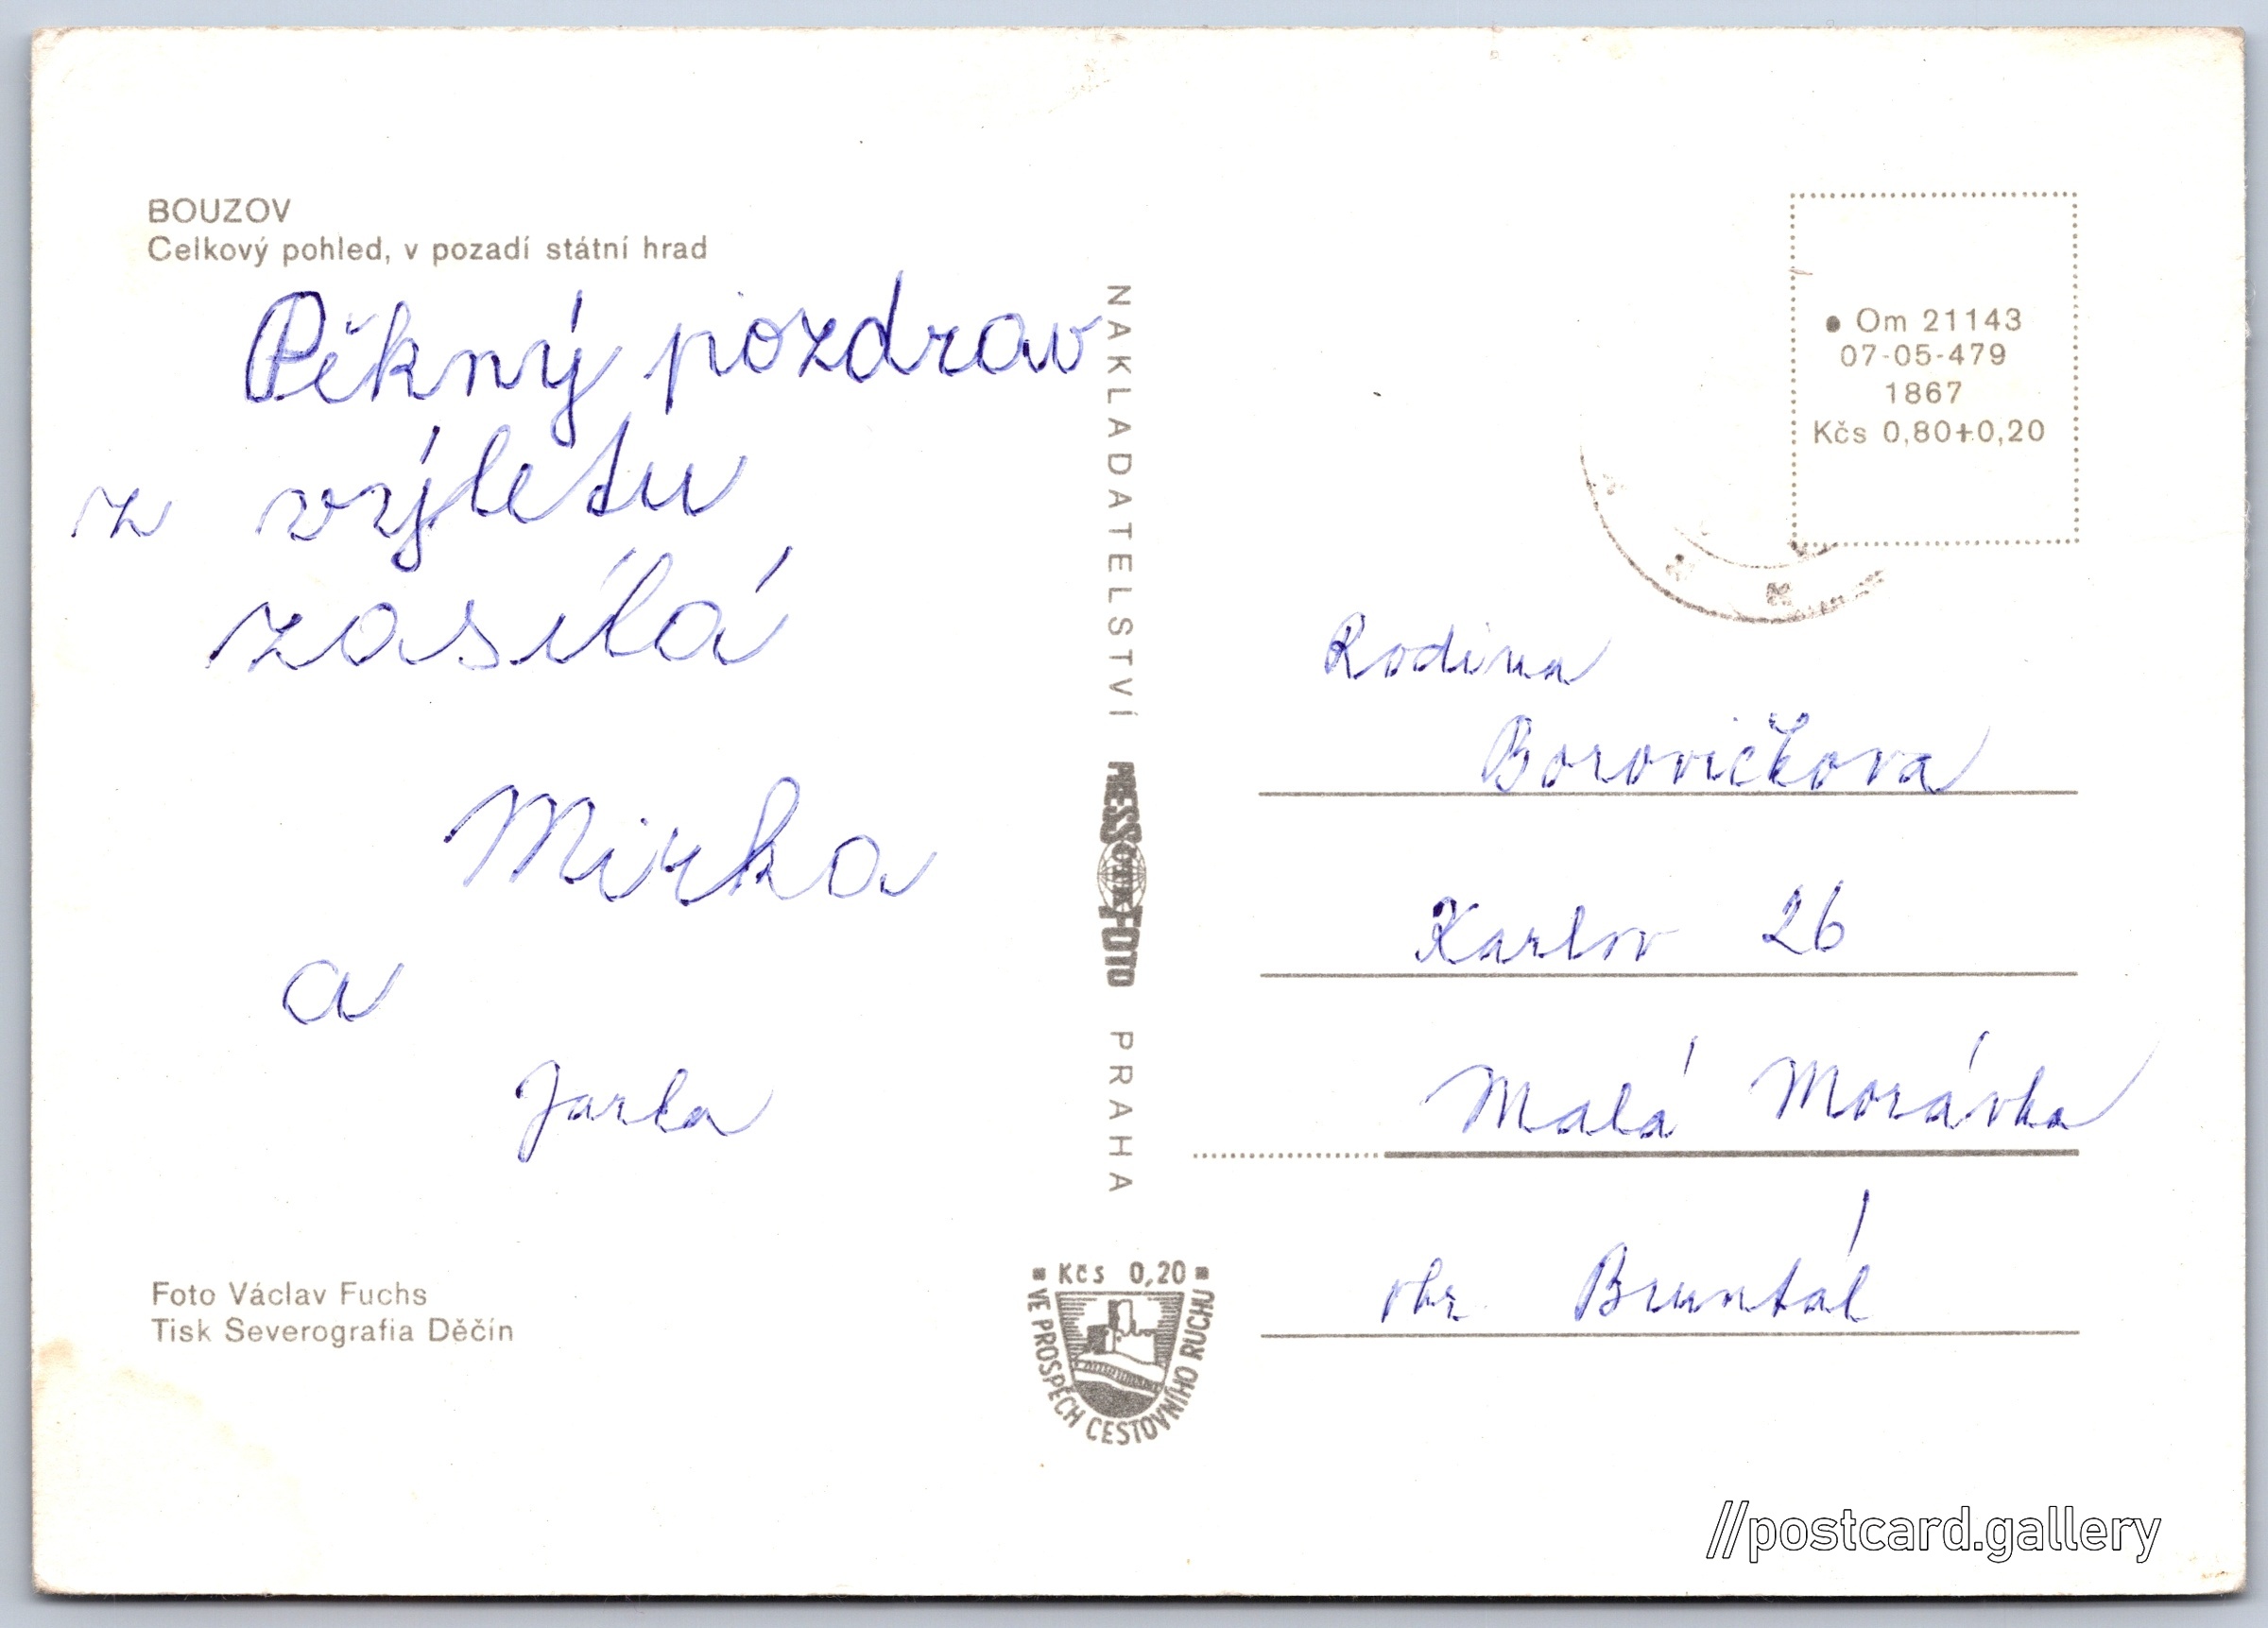 BOUZOV
Celkový pohled, v pozadí státní hrad
Pěkný pozdrav
z výletu
zasílá
Mirka
a
Jarka
Foto Václav Fuchs
Tisk Severografia Děčín
NAKLADATELSTVÍ PRESSFOTO PRAHA
Kčs 0,20
VE PROSPĚCH CESTOVNÍHO RUCHU
Om 21143
07-05-479
1867
Kčs 0,80+0,20
Rodina
Borovičkova
Karlov 26
Malá Morávka
okr. Bruntál
//postcard.gallery